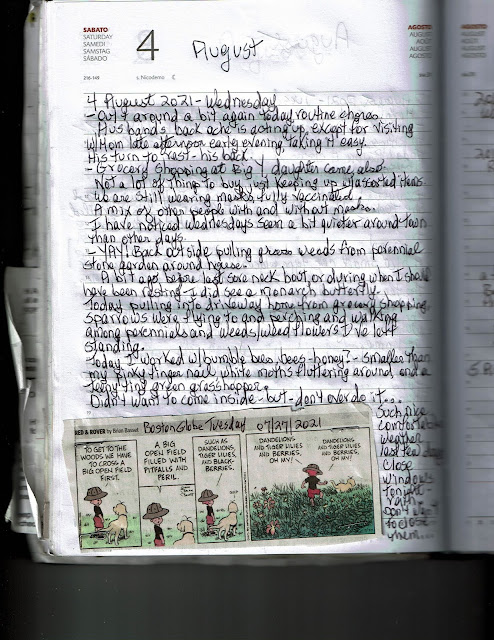 SABATO
SATURDAY
SAMEDI
SAMSTAG
SÁBADO
4
August
216-149
s. Nicodemo
AGOSTO
AUGUST
AOÛT
AUGUST
AGOSTO
4 August 2021 - Wednesday
- Out & around a bit again today, routine chores.
Husbands back ache is acting up, except for visiting
w/Mom late afternoon early evening, taking it easy.
His turn to rest - his back.
- Grocery shopping at Big Y, daughter came, also.
Not a lot of things to buy, just keeping up w/assorted items.
We are still wearing masks, fully vaccinated.
A mix of other people with and without masks.
I have noticed Wednesdays seem a bit quieter around town
than other days.
- YAY! Back outside pulling grass weeds from perennial
stone garden around house.
A bit ago, before last sore neck bout, or during when I should
have been resting - I did see a monarch butterfly.
Today pulling into driveway home from grocery shopping,
sparrows were flying to and perching and walking
among perennials and weeds/weed flowers I've left
standing.
Today I worked w/bumble bees, bees - honey? - smaller than
my pinky finger nail white moths fluttering around, and a
teeny tiny green grasshopper.
Didn't want to come inside - but - don't over do it...
Such nice
comfortable
weather
last few days
close
windows
tonight -
rain -
don't want
to close
them...
RED & ROVER by Brian Basset
Boston Globe Tuesday 07/27/2021
TO GET TO THE
WOODS WE HAVE
TO CROSS A
BIG OPEN FIELD
FIRST.
A BIG
OPEN FIELD
FILLED WITH
PITFALLS AND
PERIL.
SUCH AS
DANDELIONS,
TIGER LILIES,
AND BLACK-
BERRIES.
DANDELIONS
AND TIGER LILIES
AND BERRIES,
OH MY!
DANDELIONS
AND TIGER LILIES
AND BERRIES,
OH MY!